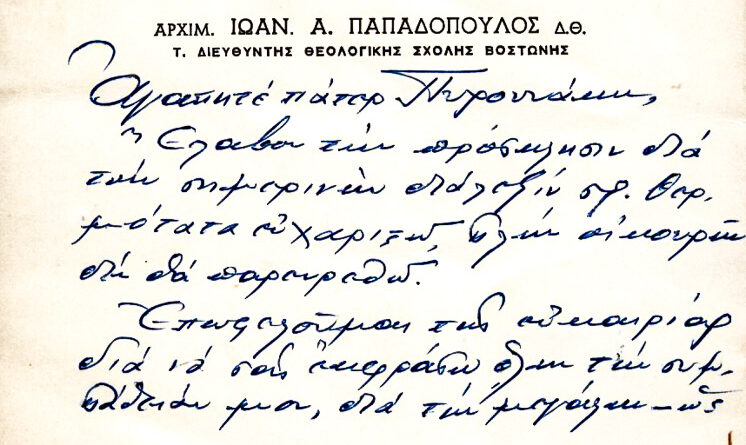 ΑΡΧΙΜ. ΙΩΑΝ. Α. ΠΑΠΑΔΟΠΟΥΛΟΣ Δ.Θ.
Τ. ΔΙΕΥΘΥΝΤΗΣ ΘΕΟΛΟΓΙΚΗΣ ΣΧΟΛΗΣ ΒΟΣΤΩΝΗΣ
Ἀγαπητέ πάτερ
Ἔλαβον τήν πρόσκλησιν διά
τήν σημερινήν διάλεξίν σας. Θερ-
μότατα εὐχαριστῶ, πλήν
δέν θά παρευρεθῶ.
Ἐπωφελοῦμαι τῆς εὐκαιρίας
διά νά σᾶς ἐκφράσω ὅλην τήν συμ-
πάθειάν μου, διά τήν μεγάλην – ὡς